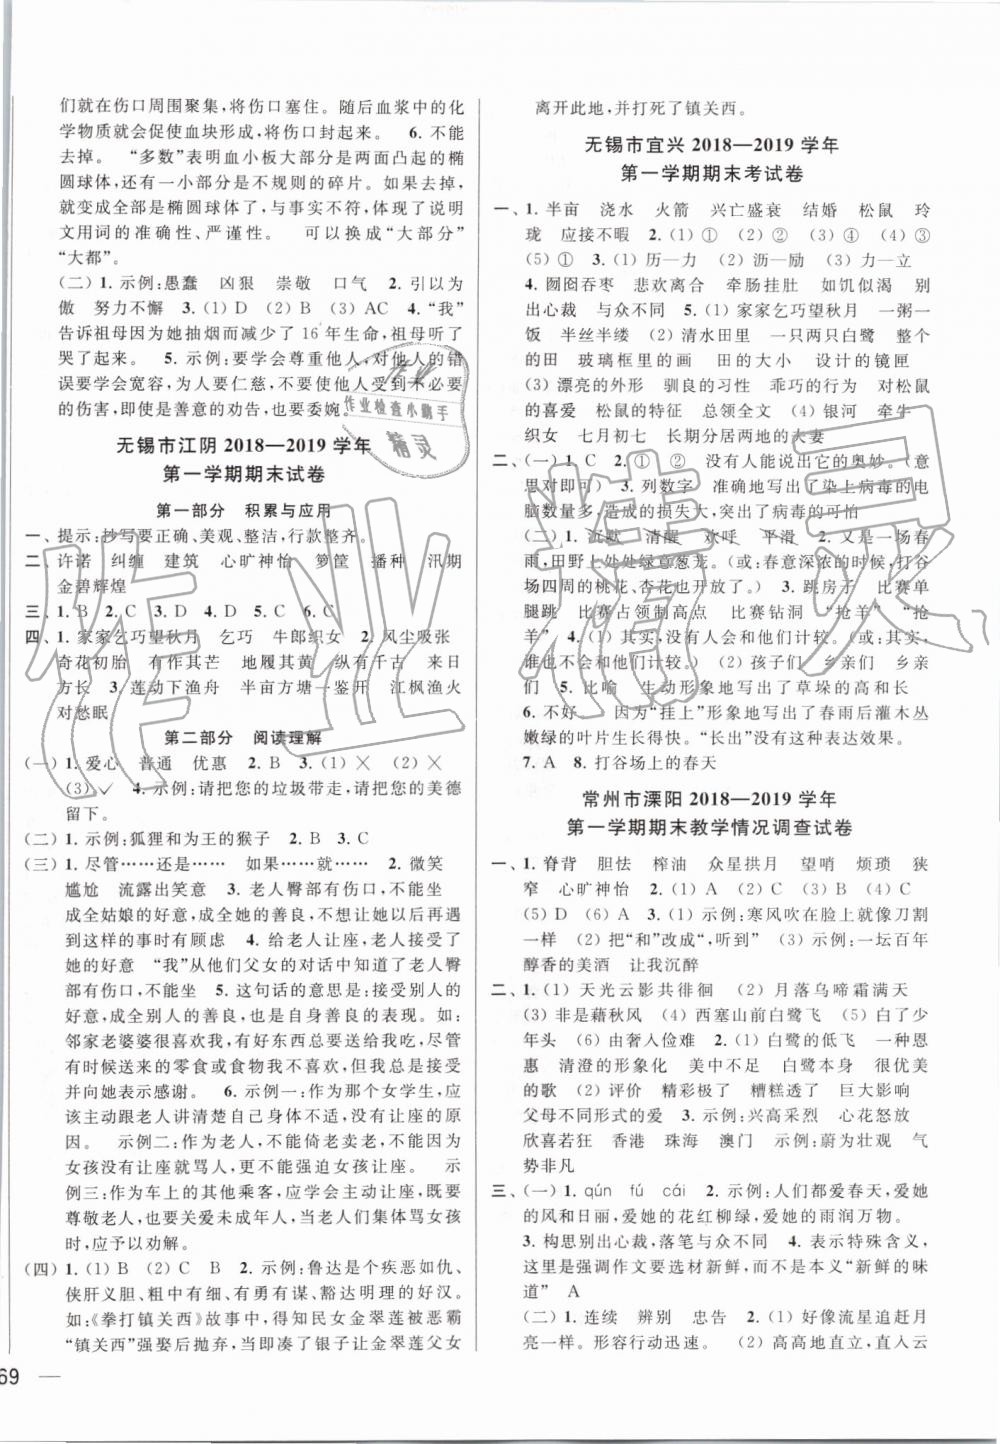 们就在伤口周围聚集,将伤口塞住。 随后血浆中的化
学物质就会促使血块形成,将伤口封起来。 6. 不能
去掉。 “多数”表明血小板大部分是两面凸起的椭
圆球体,还有一小部分是不规则的碎片。如果去掉,
就变成全部是椭圆球体了,与事实不符,体现了说明
文用词的准确性、严谨性。 可以换成“大部分”
“大都”。
(二) 1. 示例:愚蠢 凶狠 崇敬 口气 2. 引以为
傲 努力不懈 3. (1) D (2) B (3) AC 4. “我”
告诉祖母因为她抽烟而减少了 16 年生命,祖母听了
哭了起来。 5. 示例:要学会尊重他人,对他人的错
误要学会宽容,为人要仁慈,不要使他人受到不必要
的伤害,即使是善意的劝告,也要委婉。
作业检查小助手
精灵
无锡市江阴 2018—2019 学年
第一学期期末试卷
第一部分 积累与应用
一、提示:抄写要正确、美观、整洁,行款整齐。
二、许诺 纠缠 建筑 心旷神怡 箩筐 播种 汛期
金碧辉煌
三、1. B 2. C 3. D 4. D 5. B 6. C
四、1. 家家乞巧望秋月 乞巧 牛郎织女 2. 风尘吸张
奇花初胎 有作其芒 地履其黄 纵有千古 来日
方长 3. 莲动下渔舟 半亩方塘一鉴开 江枫渔火
对愁眠
第二部分 阅读理解
(一) 1. 爱心 普通 优惠 2. B 3. (1) ✕ (2) ✕
(3) ✓ 4. 示例:请把您的垃圾带走,请把您的美德
留下。
(二) 1. 示例:狐狸和为王的猴子 2. B 3. C
(三) 1. 尽管……还是…… 如果……就…… 2. 微笑
尴尬 流露出笑意 3. 老人臀部有伤,不能坐
成全姑娘的好意,成全她的善良,不要让她以后再遇到
这样的事时有顾虑 4. 给老人让座,老人接受了
她的好意 “我”从他们父女的对话中知道了老人臀
部有伤,不能坐 5. 这句话的意思是:接受别人的
善良,也是成全别人的善良,也是自身善良的表现。如:
邻家老婆婆很喜欢我,有好东西总要送给我吃,尽管
有时候她送的零食或食物我不喜欢,但我总是接受
并向她表示感谢。 6. 示例一:作为那个女学生,应
该主动跟老人讲清楚自己身体不适,没有让座的原
因。 示例二:作为老人,不能倚老卖老,不能因为
女孩没有让座就骂人,更不能强迫女孩让座。 示
例三:作为车上的其他乘客,应学会主动让座,既要
尊敬老人,也要关爱未成年人,当老人们集体骂女孩
时,应予以劝解。
(四) 1. (1) B (2) C B 2. 示例:鲁达是个疾恶如仇、
侠肝义胆、粗中有细、有勇有谋、豁达明理的好汉。
如:《拳打镇关西》故事中,得知民女金翠莲被恶霸
“镇关西”强娶后抛弃,当即凑了银子让金翠莲父女
69
离开此地,并打死了镇关西。
无锡市宜兴 2018—2019 学年
第一学期期末考试卷
一、1. 半亩 浇水 火箭 兴亡盛衰 结婚 松鼠 玲
珑 应接不暇 2. (1) ① (2) ② (3) ④ (4) ③
(5) ① 3. (1) 历—力 (2) 沥—励 (3) 力—立
4. 囫囵吞枣 悲欢离合 牵肠挂肚 如饥似渴 别
出心裁 与众不同 5. (1) 家家乞巧望秋月 一粥一
饭 半丝半缕 (2) 清水田里 一只两只白鹭 整个
的田 玻璃框里的画 田的大小 设计的镜匣
(3) 漂亮的外形 驯良的习性 乖巧的行为 对松鼠
的喜爱 松鼠的特征 总领全文 (4) 银河 牵牛
织女 七月初七 长期分居两地的夫妻
二、(一) 1. C 2. ① ② 没有人能说出它的奥妙。(意
思对即可) 3. 列数字 准确地写出了染上病毒的电
脑数量多,造成的损失大,突出了病毒的可怕
(二) 1. 沉默 清醒 欢呼 平滑 2. 又是一场春
雨,田野上处处绿意葱茏。(或:春意深深浓浓,打谷
场四周的桃花、杏花也开放了。) 3. 跳房子 比赛单
腿跳 比赛占领制高点 比赛钻洞 “抢羊” “抢
羊” 4. (1) 其实,没人会和他们计较。(或:其实,
谁也不会和他们计较。) (2) 孩子们 乡亲们 乡亲
们 5. 比喻 生动形象地写出了草垛的高和长
6. 不好。 因为“挂上”形象地写出了春雨后灌木丛
嫩绿的叶片生长得快。“长出”没有这种表达效果。
7. A 8. 打谷场上的春天
常州市溧阳 2018—2019 学年
第一学期期末教学情况调查试卷
一、1. 脊背 胆怯 榨油 众星拱月 望哨 烦琐 狭
窄 心旷神怡 2. (1) A (2) C (3) B (4) C
(5) D (6) A 3. (1) 示例:寒风吹在脸上就像刀割
一样 (2) 把“和”改成“,听到” (3) 示例:一坛百年
醇香的美酒 让我沉醉
二、1. (1) 天光云影共徘徊 (2) 月落乌啼霜满天
(3) 非是藉秋风 (4) 西塞山前白鹭飞 (5) 白了少
年头 (6) 由奢入俭难 2. (1) 白鹭的低飞 一幅优
惠 清澄的形象化 美中不足 白鹭本身 很优美
的歌 (2) 评价 精彩极了 糟糕透了 巨大影响
父母不同形式的爱 3. 示例:兴高采烈 心花怒放
欣喜若狂 香港 珠海 澳门 示例:蔚为壮观 气
势非凡
三、(一) 1. qún fú cái 2. 示例:人们都爱春天,爱她
的风和日丽,爱她的花红柳绿,爱她的雨润万物。
3. 构思别出心裁,落笔与众不同 4. 表示特殊含义,
这里是强调作文要选材新鲜,而不同于本义“新鲜的味
道” A
(二) 1. 连续 辨别 忠告 2. (1) 好像流星追赶月
亮一样。形容行动迅速。 (2) 高高地直立,直入云